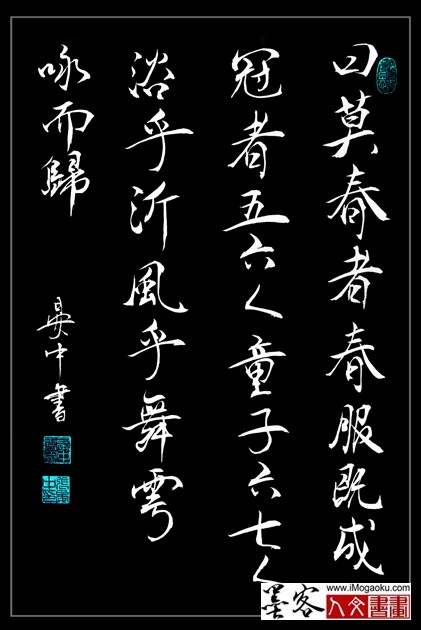 曰莫春者春服既成
冠者五六人童子六七人
浴乎沂風乎舞雩
咏而歸
昊中書
www.iMogaoku.com
墨客
人文書畫